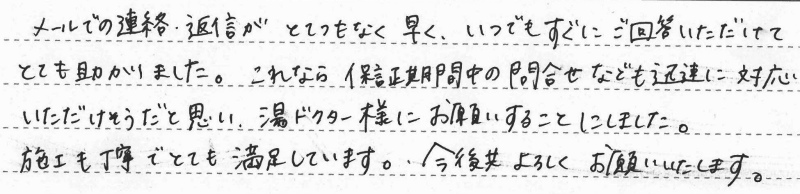 メールでの連絡・返信が とてつもなく 早く、いつでもすぐに ご回答いただけて
とても助かりました。 これなら 保証期間中の 問合せ なども迅速に 対応
いただけそうだと思い、湯ドクター様に お願いすることにしました。
施工も丁寧でとても 満足しています。今後共 よろしく お願いいたします。